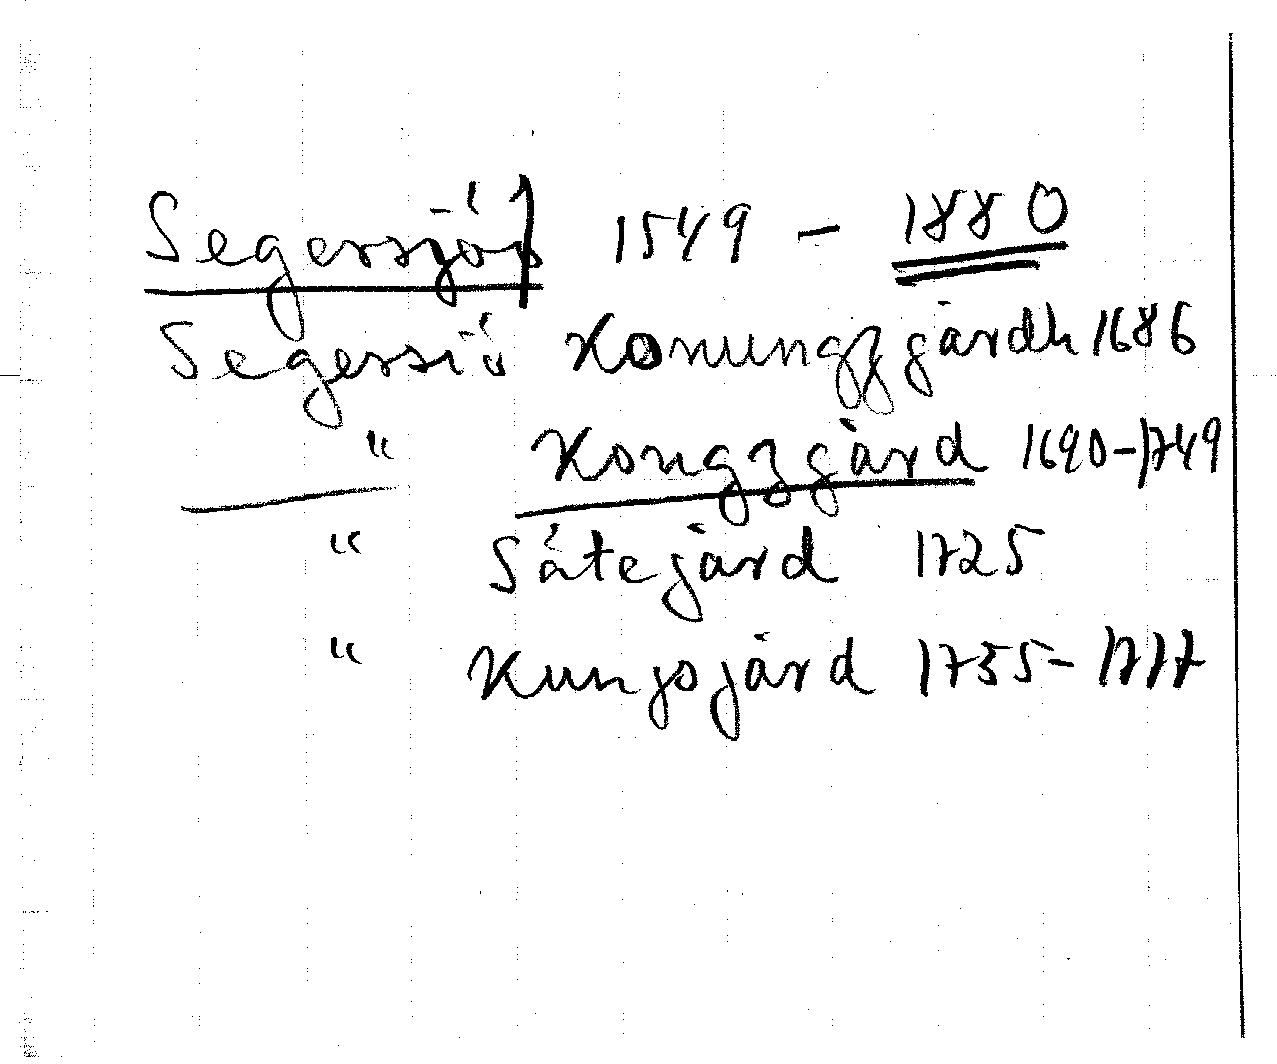 Segersjö 1549 – 1880
Segersiö Konungzgårdh 1686
" Kongzgård 1690–1749
" Sätegård 1725
" Kungsgård 1735–1777